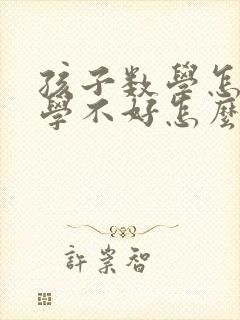 孩子数學怎
學不好怎麼
許崇智